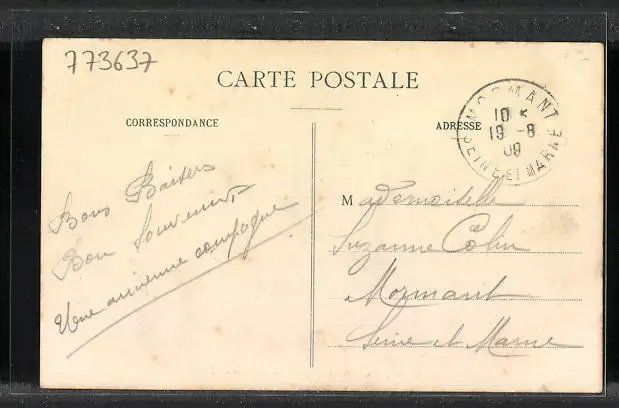 773637
CARTE POSTALE
CORRESPONDANCE
ADRESSE
MORMANT
10 *
19 -8
09
SEINE ET MARNE
Bons Baisers
Bon Souvenir
Une ancienne compagne
Mademoiselle
Suzanne Colin
Mormant
Seine et Marne